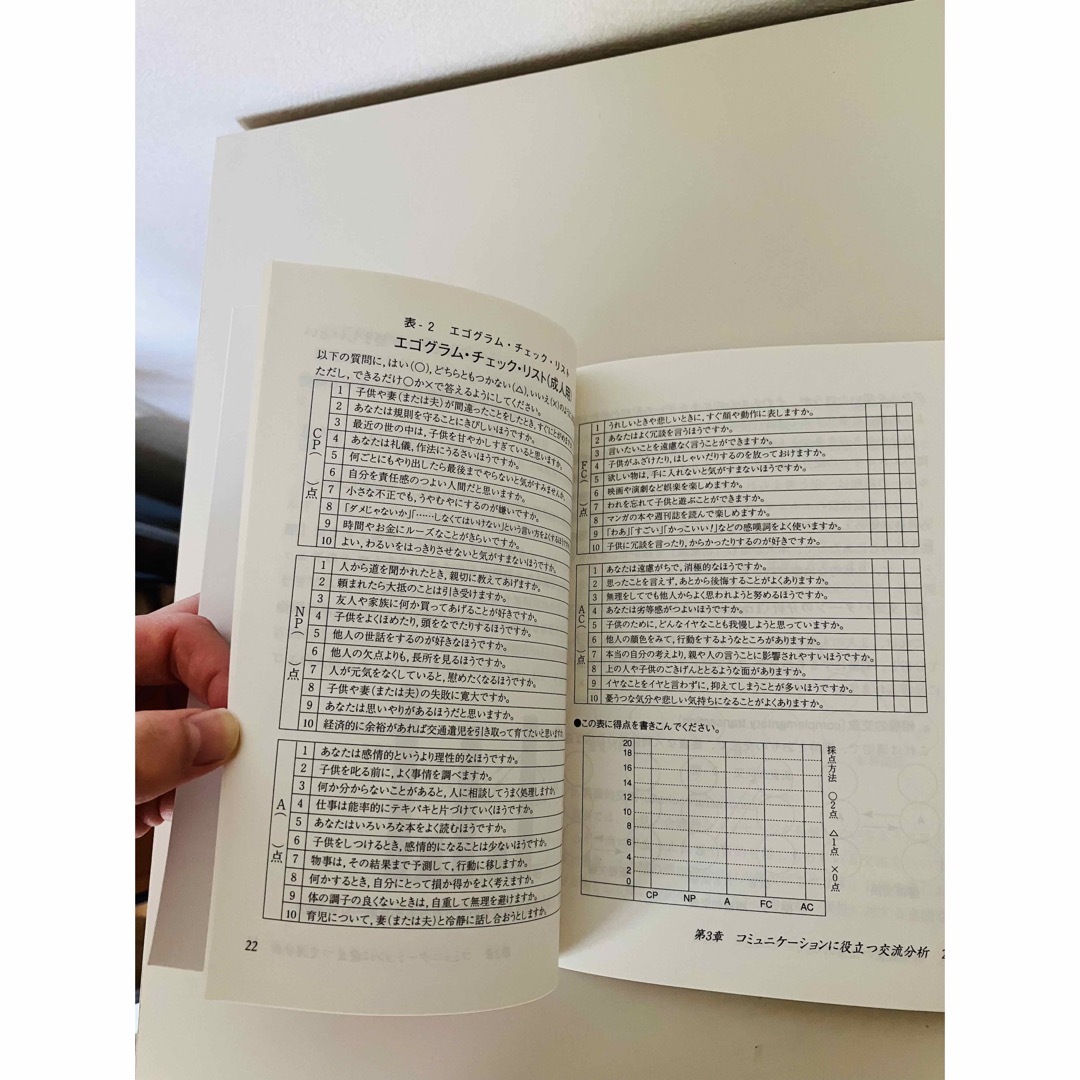 表-2 エゴグラム・チェック・リスト
エゴグラム・チェック・リスト(成人用)
以下の質問に, はい(○), どちらともつかない(△), いいえ(×)のように
ただし, できるだけ○か×で答えるようにしてください。
CP( )点
1 子供や妻(または夫)が間違ったことをしたとき, すぐにとがめま
2 あなたは規則を守ることにきびしいほうですか。
3 最近の世の中は, 子供を甘やかしすぎていると思いますか。
4 あなたは礼儀, 作法にうるさいほうですか。
5 何ごとにもやり出したら最後までやらないと気がすみませんか。
6 自分を責任感のつよい人間だと思いますか。
7 小さな不正でも, うやむやにするのが嫌いですか。
8 「ダメじゃないか」「……しなくてはいけない」という言い方をよくするほうですか
9 時間やお金にルーズなことがきらいですか。
10 よい, わるいをはっきりさせないと気がすまないほうですか。
NP( )点
1 人から道を聞かれたとき, 親切に教えてあげますか。
2 頼まれたら大抵のことは引き受けますか。
3 友人や家族に何か買ってあげることが好きですか。
4 子供をよくほめたり, 頭をなでたりするほうですか。
5 他人の世話をするのが好きなほうですか。
6 他人の欠点よりも, 長所を見るほうですか。
7 人が元気をなくしていると, 慰めたくなるほうですか。
8 子供や妻(または夫)の失敗に寛大ですか。
9 あなたは思いやりがあるほうだと思いますか。
10 経済的に余裕があれば交通遺児を引き取って育てたいと思いますか
A( )点
1 あなたは感情的というより理性的なほうですか。
2 子供を叱る前に, よく事情を調べますか。
3 何か分からないことがあると, 人に相談してうまく処理しますか
4 仕事は能率的にテキパキと片づけていくほうですか。
5 あなたはいろいろな本をよく読むほうですか。
6 子供をしつけるとき, 感情的になることは少ないほうですか。
7 物事は, その結果まで予測して, 行動に移しますか。
8 何かするとき, 自分にとって損か得かをよく考えますか。
9 体の調子の良くないときは, 自重して無理を避けますか。
10 育児について, 妻(または夫)と冷静に話し合おうとしますか。
22
FC( )点
1 うれしいときや悲しいときに, すぐ顔や動作に表しますか。
2 あなたはよく冗談を言うほうですか。
3 言いたいことを遠慮なく言うことができますか。
4 子供がふざけたり, はしゃいだりするのを放っておけますか。
5 欲しい物は, 手に入れないと気がすまないほうですか。
6 映画や演劇など娯楽を楽しめますか。
7 われを忘れて子供と遊ぶことができますか。
8 マンガの本や週刊誌を読んで楽しめますか。
9 「わあ」「すごい」「かっこいい!」などの感嘆詞をよく使いますか。
10 子供に冗談を言ったり, からかったりするのが好きですか。
AC( )点
1 あなたは遠慮がちで, 消極的なほうですか。
2 思ったことを言えず, あとから後悔することがよくありますか。
3 無理をしてでも他人からよく思われようと努めるほうですか。
4 あなたは劣等感がつよいほうですか。
5 子供のために, どんなイヤなことも我慢しようと思っていますか。
6 他人の顔色をみて, 行動をするようなところがありますか。
7 本当の自分の考えより, 親や人の言うことに影響されやすいほうですか。
8 上の人や子供のごきげんをとるような面がありますか。
9 イヤなことをイヤと言わずに, 抑えてしまうことが多いほうですか。
10 憂うつな気分や悲しい気持ちになることがよくありますか。
●この表に得点を書きこんでください。
20
18
16
14
12
10
8
6
4
2
0
CP NP A FC AC
採点方法 ○2点 △1点 ×0点
第3章 コミュニケーションに役立つ交流分析